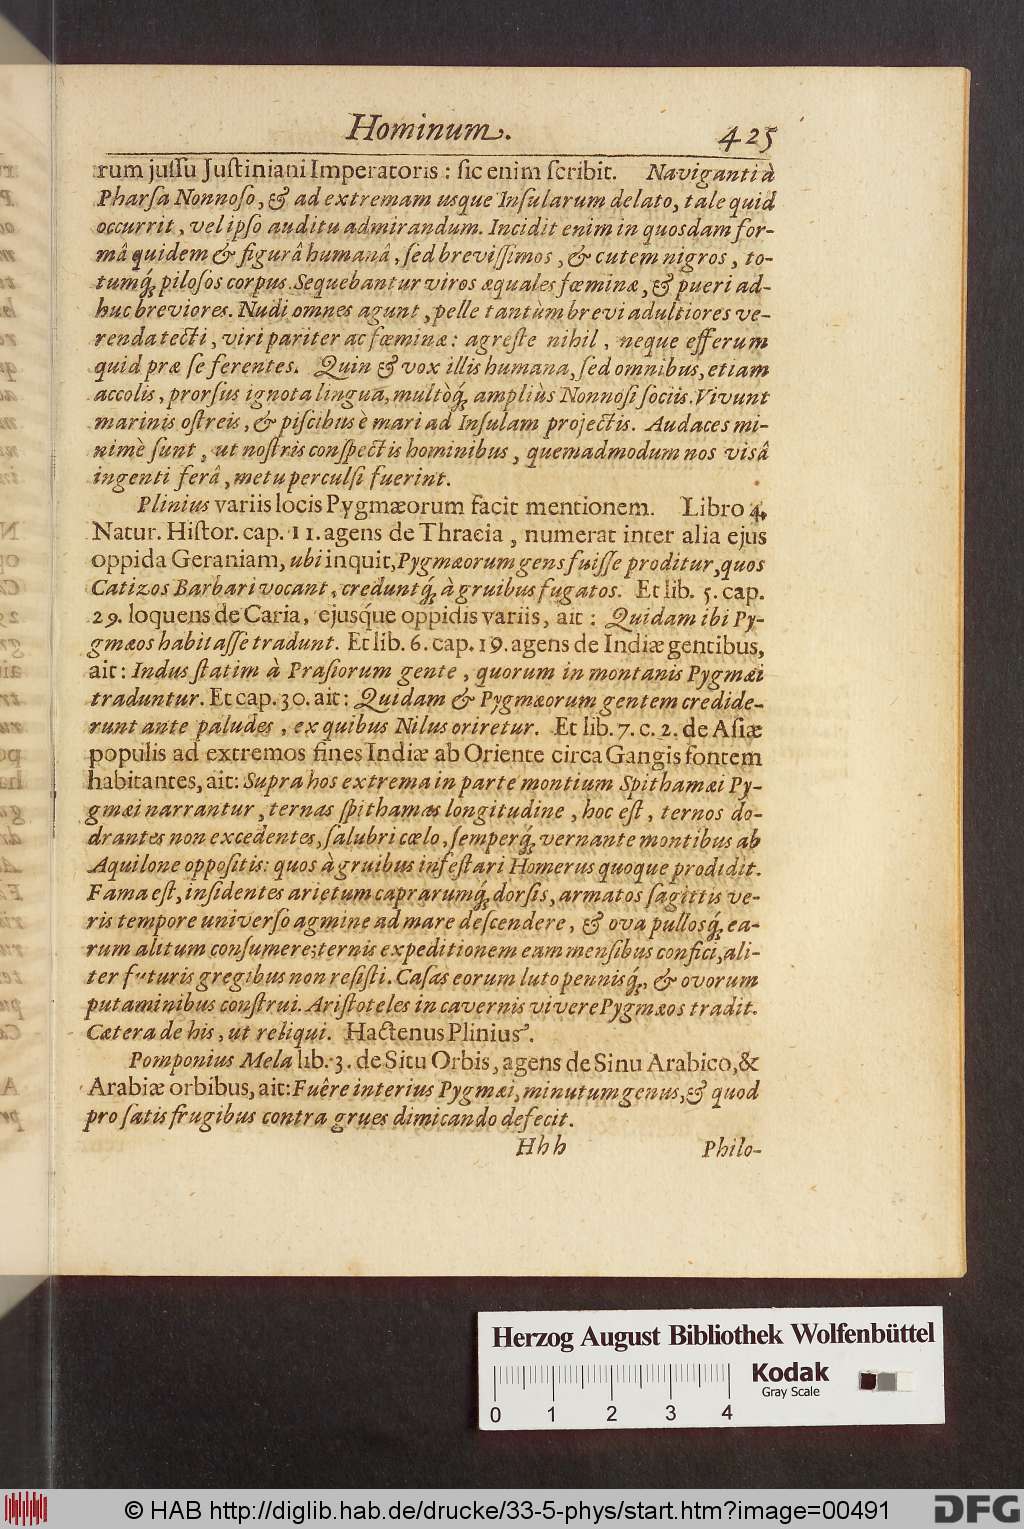 Hominum. 425
rum jussu Justiniani Imperatoris : sic enim scribit. Naviganti à
Pharsa Nonnoso, & ad extremam usque Insularum delato, tale quid
occurrit, vel ipso auditu admirandum. Incidit enim in quosdam for-
mâ quidem & figurâ humanâ, sed brevissimos, & cutem nigros, to-
tumq́; pilosos corpus. Sequebantur viros æquales fœminæ, & pueri ad-
huc breviores. Nudi omnes agunt, pelle tantùm brevi adultiores ve-
renda tecti, viri pariter ac fœminæ: agreste nihil, neque efferum
quid præ se ferentes. Quin & vox illis humana, sed omnibus, etiam
accolis, prorsus ignota lingua, multòq́; ampliùs Nonnosi sociis. Vivunt
marinis ostreis, & piscibus è mari ad Insulam projectis. Audaces mi-
nimè sunt, ut nostris conspectis hominibus, quemadmodum nos visâ
ingenti ferâ, metu perculsi fuerint.
Plinius variis locis Pygmæorum facit mentionem. Libro 4.
Natur. Histor. cap. 11. agens de Thracia, numerat inter alia ejus
oppida Geraniam, ubi inquit, Pygmæorum gens fuisse proditur, quos
Catizos Barbari vocant, creduntq́; à gruibus fugatos. Et lib. 5. cap.
29. loquens de Caria, ejusq́ue oppidis variis, ait : Quidam ibi Py-
gmæos habitasse tradunt. Et lib. 6. cap. 19. agens de Indiæ gentibus,
ait : Indus statim à Prasiorum gente, quorum in montanis Pygmæi
traduntur. Et cap. 30. ait : Quidam & Pygmæorum gentem credide-
runt ante paludes, ex quibus Nilus oriretur. Et lib. 7. c. 2. de Asiæ
populis ad extremos fines Indiæ ab Oriente circa Gangis fontem
habitantes, ait: Supra hos extrema in parte montium Spithamæi Py-
gmæi narrantur, ternas spithamas longitudine, hoc est, ternos do-
drantes non excedentes, salubri cœlo, semperq́; vernante montibus ab
Aquilone oppositis: quos à gruibus infestari Homerus quoque prodidit.
Fama est, insidentes arietum caprarumq́; dorsis, armatos sagittis ve-
ris tempore universo agmine ad mare descendere, & ova pullosq́; ea-
rum alitum consumere; ternis expeditionem eam mensibus confici, ali-
ter futuris gregibus non resisti. Casas eorum luto pennisq́;, & ovorum
putaminibus construi. Aristoteles in cavernis vivere Pygmæos tradit.
Cætera de his, ut reliqui. Hactenus Plinius.
Pomponius Mela lib. 3. de Situ Orbis, agens de Sinu Arabico, &
Arabiæ orbibus, ait: Fuêre interius Pygmæi, minutum genus, & quod
pro satis frugibus contra grues dimicando defecit.
Hhh Philo-
Herzog August Bibliothek Wolfenbüttel
Kodak
Gray Scale
0 1 2 3 4
© HAB http://diglib.hab.de/drucke/33-5-phys/start.htm?image=00491
DFG